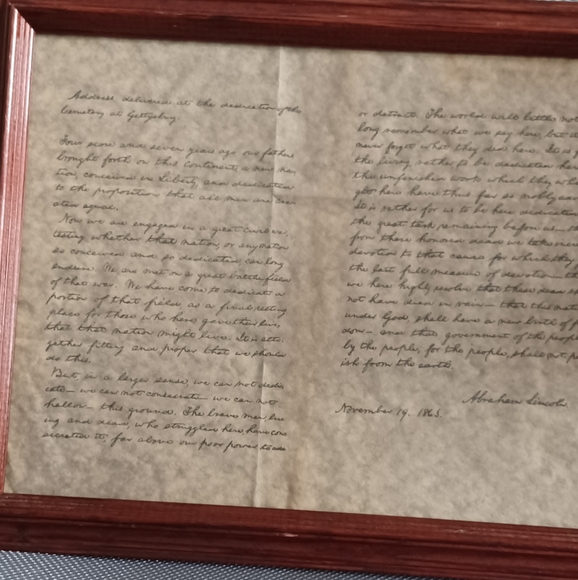 Address delivered at the dedication of the
Cemetery at Gettysburg.
Four score and seven years ago our fathers
brought forth on this continent, a new na-
tion, conceived in Liberty, and dedicated
to the proposition that all men are cre-
ated equal.
Now we are engaged in a great civil war,
testing whether that nation, or any nation
so conceived and so dedicated, can long
endure. We are met on a great battle-field
of that war. We have come to dedicate a
portion of that field, as a final resting
place for those who here gave their lives,
that that nation might live. It is alto-
gether fitting and proper that we should
do this.
But, in a larger sense, we can not dedi-
cate— we can not consecrate— we can not
hallow— this ground. The brave men, liv-
ing and dead, who struggled here have con-
secrated it, far above our poor power to add
or detract. The world will little note
long remember what we say here, but it
never forget what they did here. It is
the living, rather, to be dedicated here
the unfinished work which they who
ght here have thus far so nobly
It is rather for us to be here dedicated
the great task remaining before us—
from these honored dead we take
devotion to that cause for which they
the last full measure of devotion—
we here highly resolve that these dead
not have died in vain— that this
under God, shall have a new birth of
dom— and that government of the people,
by the people, for the people, shall not
ish from the earth.
Abraham Lincoln.
November 19, 1863.